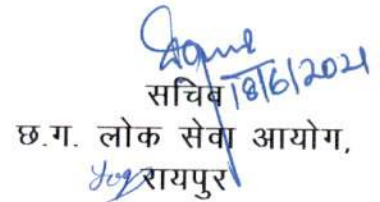 18/6/2021
सचिव
छ.ग. लोक सेवा आयोग,
रायपुर